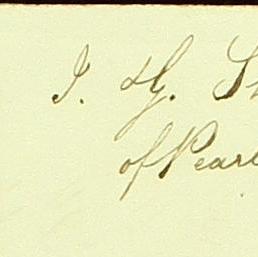 J. H. S
of Pearl